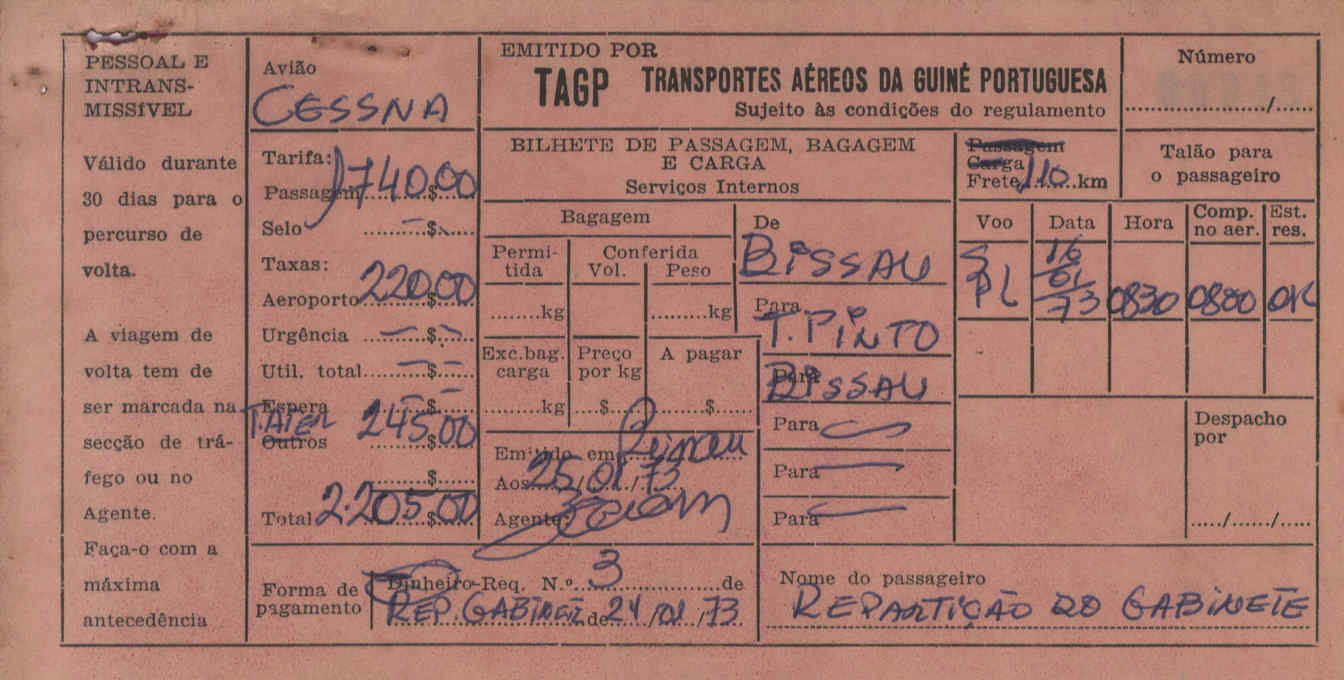 PESSOAL E
INTRANS-
MISSÍVEL
Válido durante
30 dias para o
percurso de
volta.
A viagem de
volta tem de
ser marcada na
secção de trá-
fego ou no
Agente.
Faça-o com a
máxima
antecedência
Avião
CESSNA
Tarifa:
Passagem 1740$00
Selo ..........$......
Taxas:
Aeroporto 220$00
Urgência ........$......
Util. total ........$......
Espera ........$......
Outros 245$00
..........$......
Total 2.205$00
EMITIDO POR
TAGP TRANSPORTES AÉREOS DA GUINÉ PORTUGUESA
Sujeito às condições do regulamento
BILHETE DE PASSAGEM, BAGAGEM
E CARGA
Serviços Internos
Passagem
Carga
Frete 110 km
Número
............/.....
Talão para
o passageiro
Bagagem
Permi-
tida
Conferida
Vol. Peso
........kg .........kg
Exc.bag.
carga
Preço
por kg
A pagar
........kg ....$...... ........$......
Emitido em Bissau
Aos 25/01/73
Agente:
De
BISSAU
Para
T. PINTO
Para
BISSAU
Para
Para
Para
Voo Data Hora Comp.
no aer. Est.
res.
16/01/73 0830 0800 OK
Despacho
por
...../....../.....
Forma de
pagamento
Dinheiro-Req. N.º 3 de
REP. GABINETE de 24/01/73
Nome do passageiro
REPARTIÇÃO DO GABINETE